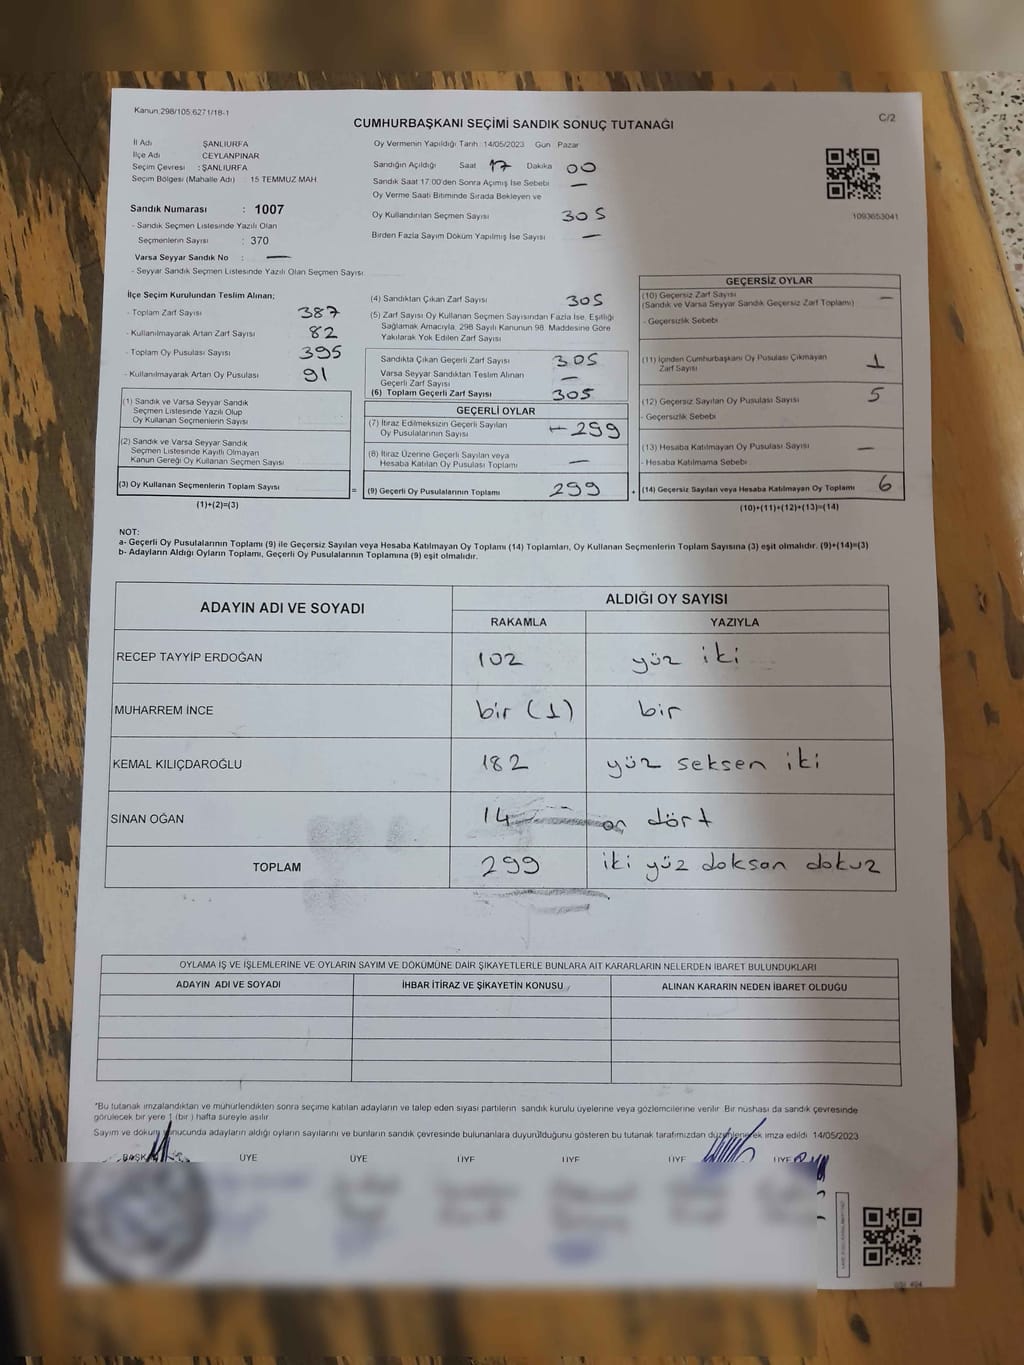 Kanun:298/105;6271/18-1
CUMHURBAŞKANI SEÇİMİ SANDIK SONUÇ TUTANAĞI
C/2
İl Adı ŞANLIURFA
İlçe Adı CEYLANPINAR
Seçim Çevresi : ŞANLIURFA
Seçim Bölgesi (Mahalle Adı) : 15 TEMMUZ MAH.
Sandık Numarası : 1007
- Sandık Seçmen Listesinde Yazılı Olan
Seçmenlerin Sayısı : 370
Varsa Seyyar Sandık No : —
- Seyyar Sandık Seçmen Listesinde Yazılı Olan Seçmen Sayısı
Oy Vermenin Yapıldığı Tarih: 14/05/2023 Gün Pazar
Sandığın Açıldığı Saat 17 Dakika 00
Sandık Saat 17:00'den Sonra Açımış İse Sebebi —
Oy Verme Saati Bitiminde Sırada Bekleyen ve
Oy Kullandırılan Seçmen Sayısı 305
Birden Fazla Sayım Döküm Yapılmış İse Sayısı —
1093653041
İlçe Seçim Kurulundan Teslim Alınan;
- Toplam Zarf Sayısı 387
- Kullanılmayarak Artan Zarf Sayısı 82
- Toplam Oy Pusulası Sayısı 395
- Kullanılmayarak Artan Oy Pusulası 91
(1) Sandık ve Varsa Seyyar Sandık
Seçmen Listesinde Yazılı Olup
Oy Kullanan Seçmenlerin Sayısı
(2) Sandık ve Varsa Seyyar Sandık
Seçmen Listesinde Kayıtlı Olmayan
Kanun Gereği Oy Kullanan Seçmen Sayısı
(3) Oy Kullanan Seçmenlerin Toplam Sayısı
=
(1)+(2)=(3)
(4) Sandıktan Çıkan Zarf Sayısı 305
(5) Zarf Sayısı Oy Kullanan Seçmen Sayısından Fazla İse, Eşitliği
Sağlamak Amacıyla, 298 Sayılı Kanunun 98. Maddesine Göre
Yakılarak Yok Edilen Zarf Sayısı
Sandıkta Çıkan Geçerli Zarf Sayısı 305
Varsa Seyyar Sandıktan Teslim Alınan
Geçerli Zarf Sayısı —
(6) Toplam Geçerli Zarf Sayısı 305
GEÇERLİ OYLAR
(7) İtiraz Edilmeksizin Geçerli Sayılan
Oy Pusulalarının Sayısı 299
(8) İtiraz Üzerine Geçerli Sayılan veya
Hesaba Katılan Oy Pusulası Toplamı —
(9) Geçerli Oy Pusulalarının Toplamı 299
+
GEÇERSİZ OYLAR
(10) Geçersiz Zarf Sayısı —
(Sandık ve Varsa Seyyar Sandık Geçersiz Zarf Toplamı)
- Geçersizlik Sebebi
(11) İçinden Cumhurbaşkanı Oy Pusulası Çıkmayan
Zarf Sayısı 1
(12) Geçersiz Sayılan Oy Pusulası Sayısı 5
- Geçersizlik Sebebi
(13) Hesaba Katılmayan Oy Pusulası Sayısı —
- Hesaba Katılmama Sebebi
(14) Geçersiz Sayılan veya Hesaba Katılmayan Oy Toplamı 6
(10)+(11)+(12)+(13)=(14)
NOT:
a- Geçerli Oy Pusulalarının Toplamı (9) ile Geçersiz Sayılan veya Hesaba Katılmayan Oy Toplamı (14) Toplamları, Oy Kullanan Seçmenlerin Toplam Sayısına (3) eşit olmalıdır. (9)+(14)=(3)
b- Adayların Aldığı Oyların Toplamı, Geçerli Oy Pusulalarının Toplamına (9) eşit olmalıdır.
ADAYIN ADI VE SOYADI ALDIĞI OY SAYISI
RAKAMLA YAZIYLA
RECEP TAYYİP ERDOĞAN 102 yüz iki
MUHARREM İNCE bir (1) bir
KEMAL KILIÇDAROĞLU 182 yüz seksen iki
SİNAN OĞAN 14 on dört
TOPLAM 299 iki yüz doksan dokuz
OYLAMA İŞ VE İŞLEMLERİNE VE OYLARIN SAYIM VE DÖKÜMÜNE DAİR ŞİKAYETLERLE BUNLARA AİT KARARLARIN NELERDEN İBARET BULUNDUKLARI
ADAYIN ADI VE SOYADI İHBAR İTİRAZ VE ŞİKAYETİN KONUSU ALINAN KARARIN NEDEN İBARET OLDUĞU
"Bu tutanak imzalandıktan ve mühürlendikten sonra seçime katılan adayların ve talep eden siyasi partilerin sandık kurulu üyelerine veya gözlemcilerine verilir. Bir nüshası da sandık çevresinde
görülecek bir yere 1 (bir) hafta süreyle asılır.
Sayım ve döküm sonucunda adayların aldığı oyların sayılarını ve bunların sandık çevresinde bulunanlara duyurulduğunu gösteren bu tutanak tarafımızdan düzenlenerek imza edildi. 14/05/2023
BAŞKAN ÜYE ÜYE ÜYE ÜYE ÜYE ÜYE